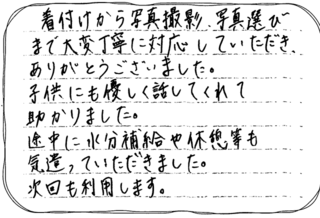 着付けから写真撮影、写真選び
まで大変丁寧に対応していただき、
ありがとうございました。
子供にも優しく話してくれて
助かりました。
途中に水分補給や休憩等も
気遣っていただきました。
次回も利用します。